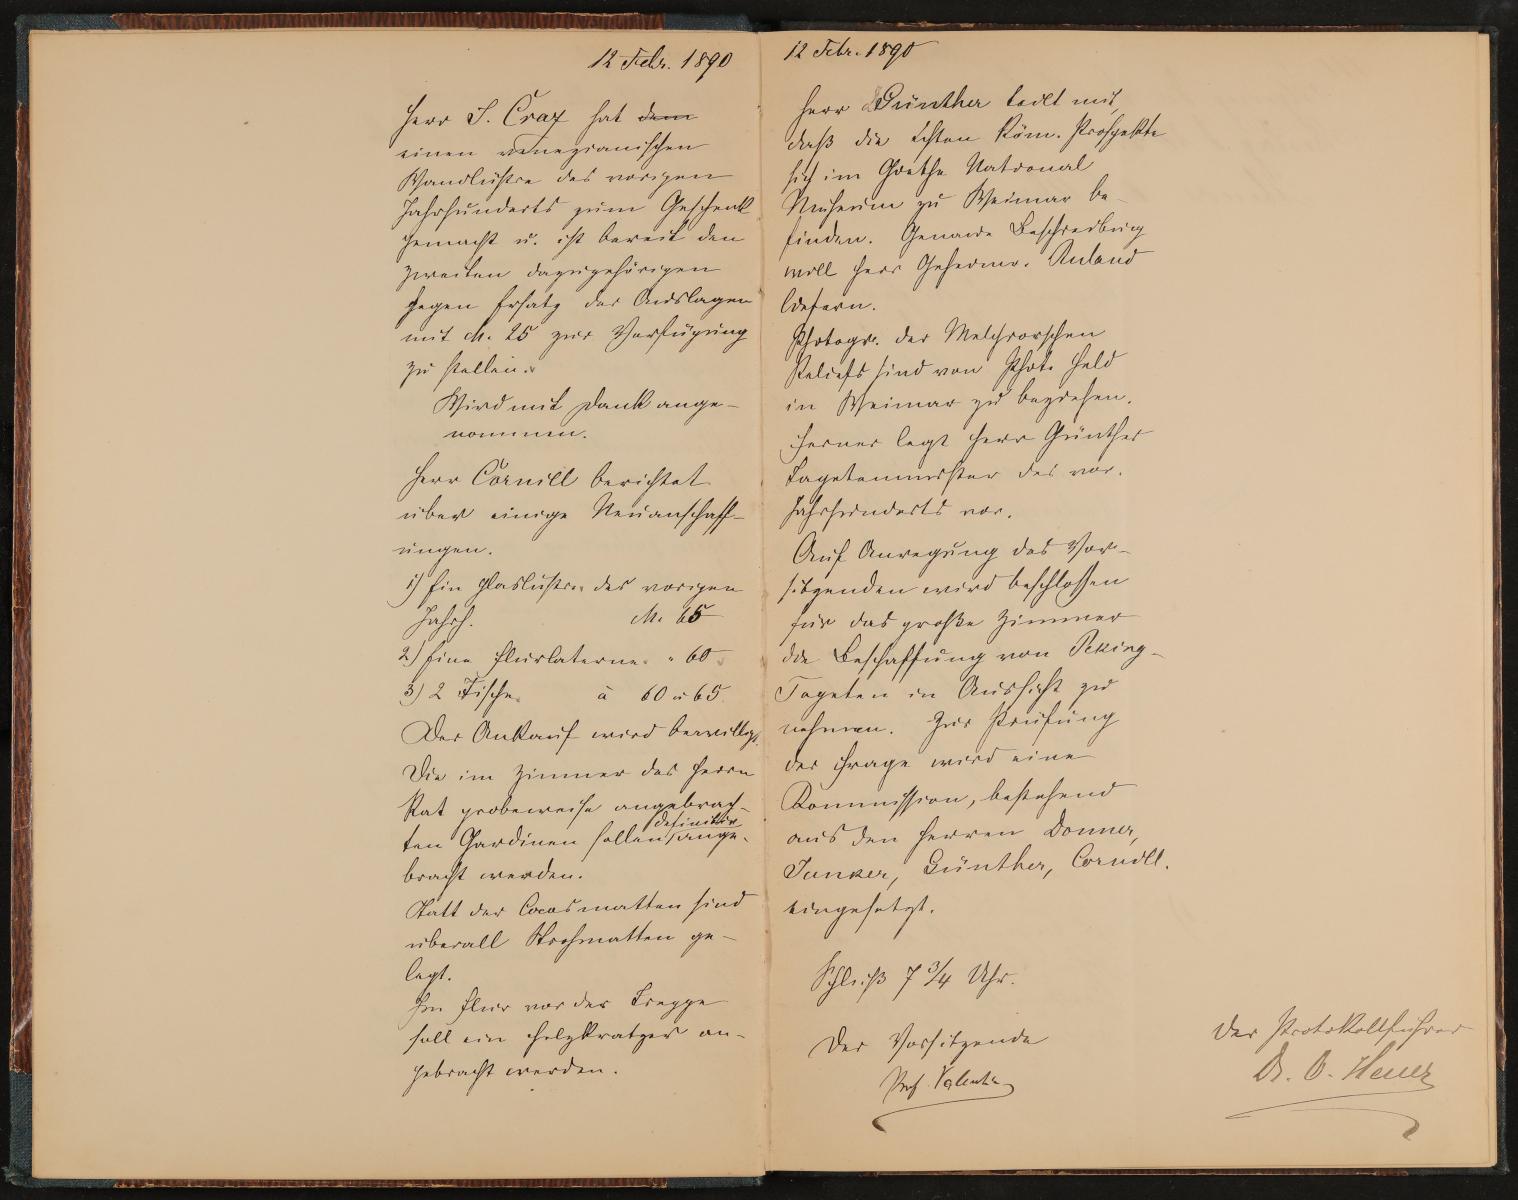 12 Febr. 1890
Herr S. Craz hat dem
einen venezianischen
Wandlüstre des vorigen
Jahrhunderts zum Geschenk
gemacht u. ist bereit den
zweiten dazugehörigen
gegen Ersatz der Auslagen
mit M. 25 zur Verfügung
zu stellen.
Wird mit Dank ange-
nommen.
Herr Cornill berichtet
über einige Neuanschaff-
ungen.
1) Ein Glaslustre des vorigen
Jahrh. M. 65
2) Eine Flurlaterne " 60
3) 2 Tische à 60 u 65
Der Ankauf wird bewilligt.
Die im Zimmer des Herrn
Rat probeweise angebrach-
ten Gardinen sollen definitiv ange-
bracht werden.
Statt der Cocosmatten sind
überall Strohmatten ge-
legt.
Im Flur vor der Treppe
soll ein Holzkratzer an-
gebracht werden.
12 Febr. 1890
Herr Günther teilt mit,
daß die echten Röm. Prospekte
sich im Goethe National
Museum zu Weimar be-
finden. Genaue Beschreibung
will Herr Geheimr. Ruland
liefern.
Photogr. der Melchiorschen
Reliefs sind von Phot. Held
in Weimar zu beziehen.
Ferner legt Herr Günther
Tapetenmuster des vor.
Jahrhunderts vor.
Auf Anregung des Vor-
sitzenden wird beschlossen
für das große Zimmer
die Beschaffung von Peking-
Tapeten in Aussicht zu
nehmen. Zur Prüfung
der Frage wird eine
Kommission, bestehend
aus den Herren Donner,
Junker, Günther, Cornill.
eingesetzt.
Schluß 7 3/4 Uhr.
Der Vorsitzende
Prof. Valentin
Der Protokollführer
Dr. O. Heuer